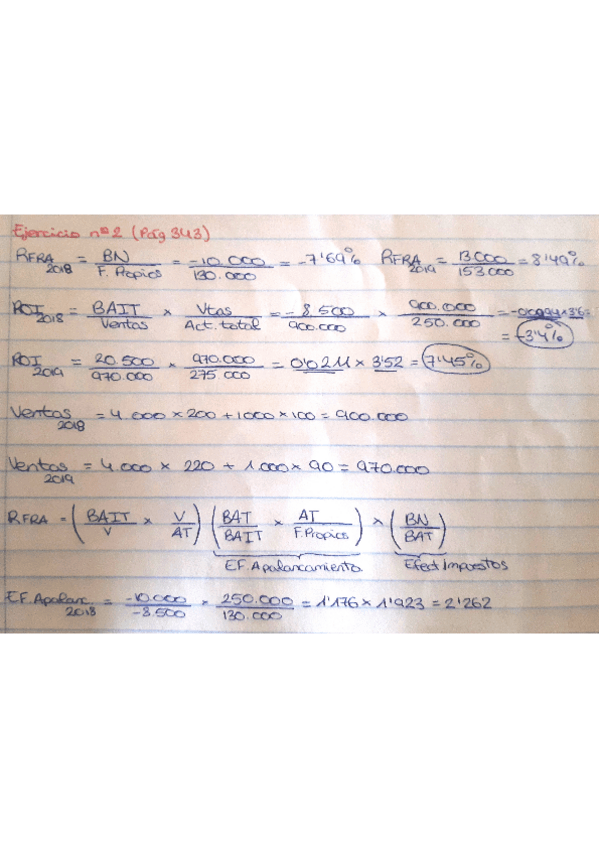 Ejercicio nº 2 (Pág 343)
RFRA 2018 = BN / F. Propios = -10.000 / 130.000 = -7'69% RFRA 2019 = 13000 / 153000 = 8'49%
ROI 2018 = BAIT / Ventas × Vtas / Act. total = -8.500 / 900.000 × 900.000 / 250.000 = -0'0094×3'6=
= -3'4%
ROI 2019 = 20.500 / 970.000 × 970.000 / 275.000 = 0'0211 × 3'52 = 7'45%
Ventas 2018 = 4.000 × 200 + 1000 × 100 = 900.000
Ventas 2019 = 4.000 × 220 + 1.000 × 90 = 970.000
RFRA = (BAIT / V × V / AT) (BAT / BAIT × AT / F.Propios) × (BN / BAT)
EF. Apalancamiento Efect impuestos
EF. Apalanc. 2018 = -10.000 / -8.500 × 250.000 / 130.000 = 1'176 × 1'923 = 2'262